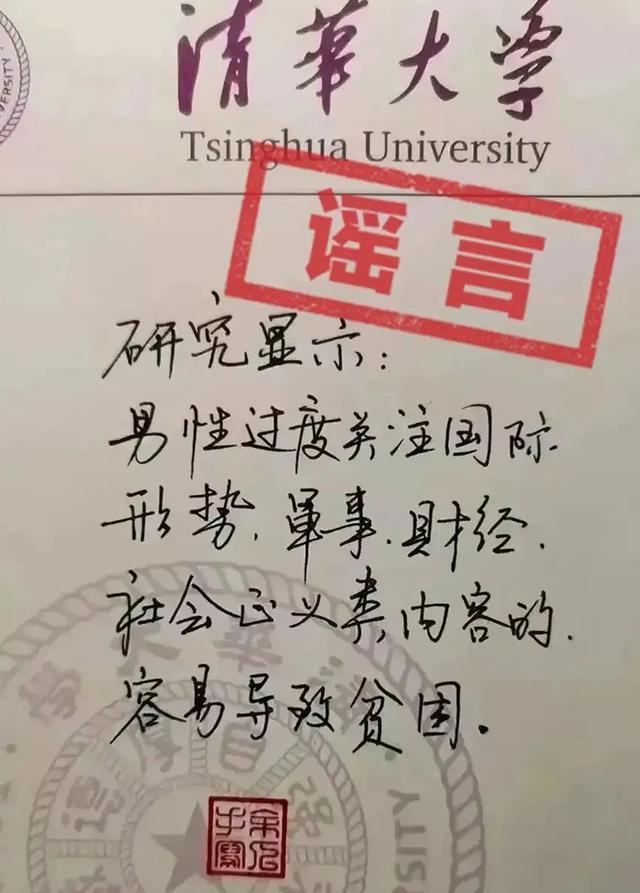 清華大学
Tsinghua University
谣言
研究显示：
男性过度关注国际
形势、军事、财经、
社会正义类内容的，
容易导致贫困。